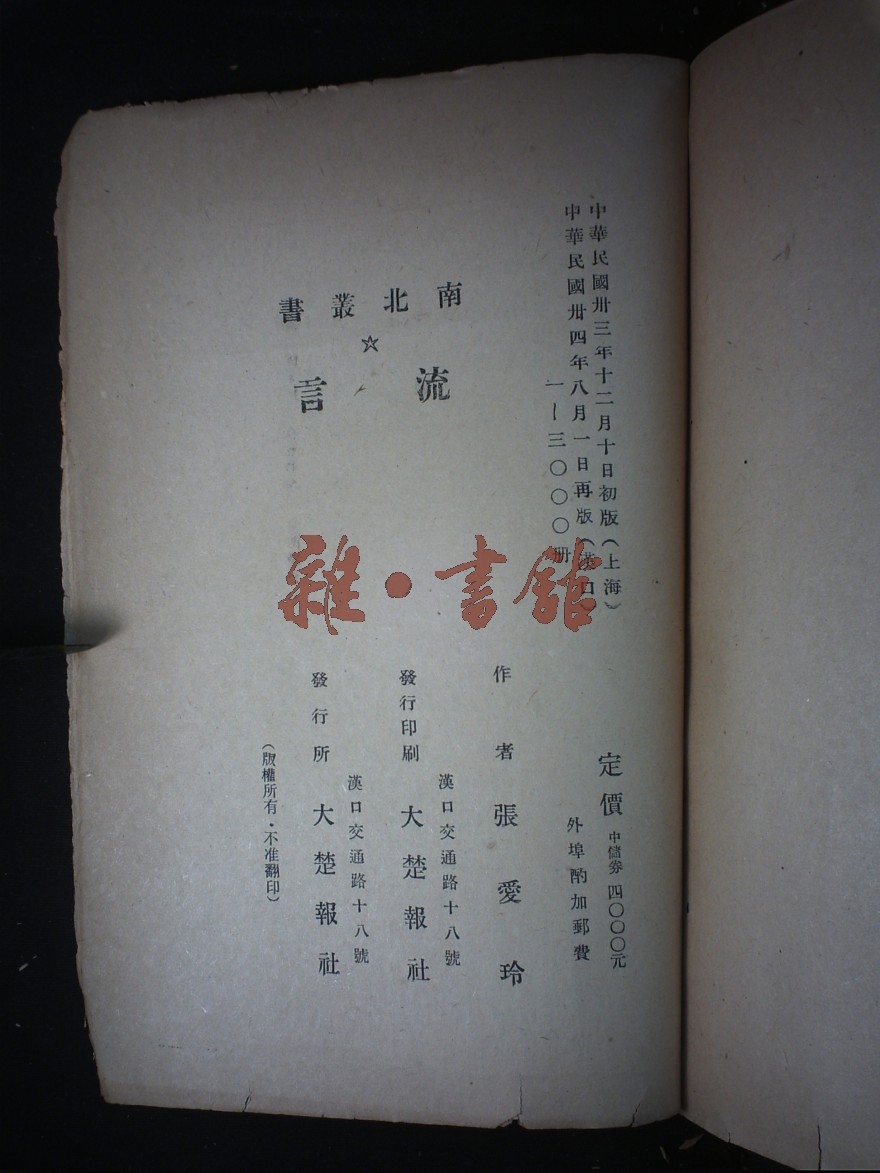 中華民國卅三年十二月十日初版（上海）
中華民國卅四年八月一日再版（漢口）
一—三〇〇〇册
南北叢書
☆
流言
定價 中儲券 四〇〇〇元
外埠酌加郵費
作者 張愛玲
漢口交通路十八號
發行印刷 大楚報社
漢口交通路十八號
發行所 大楚報社
（版權所有・不准翻印）
雜・書館